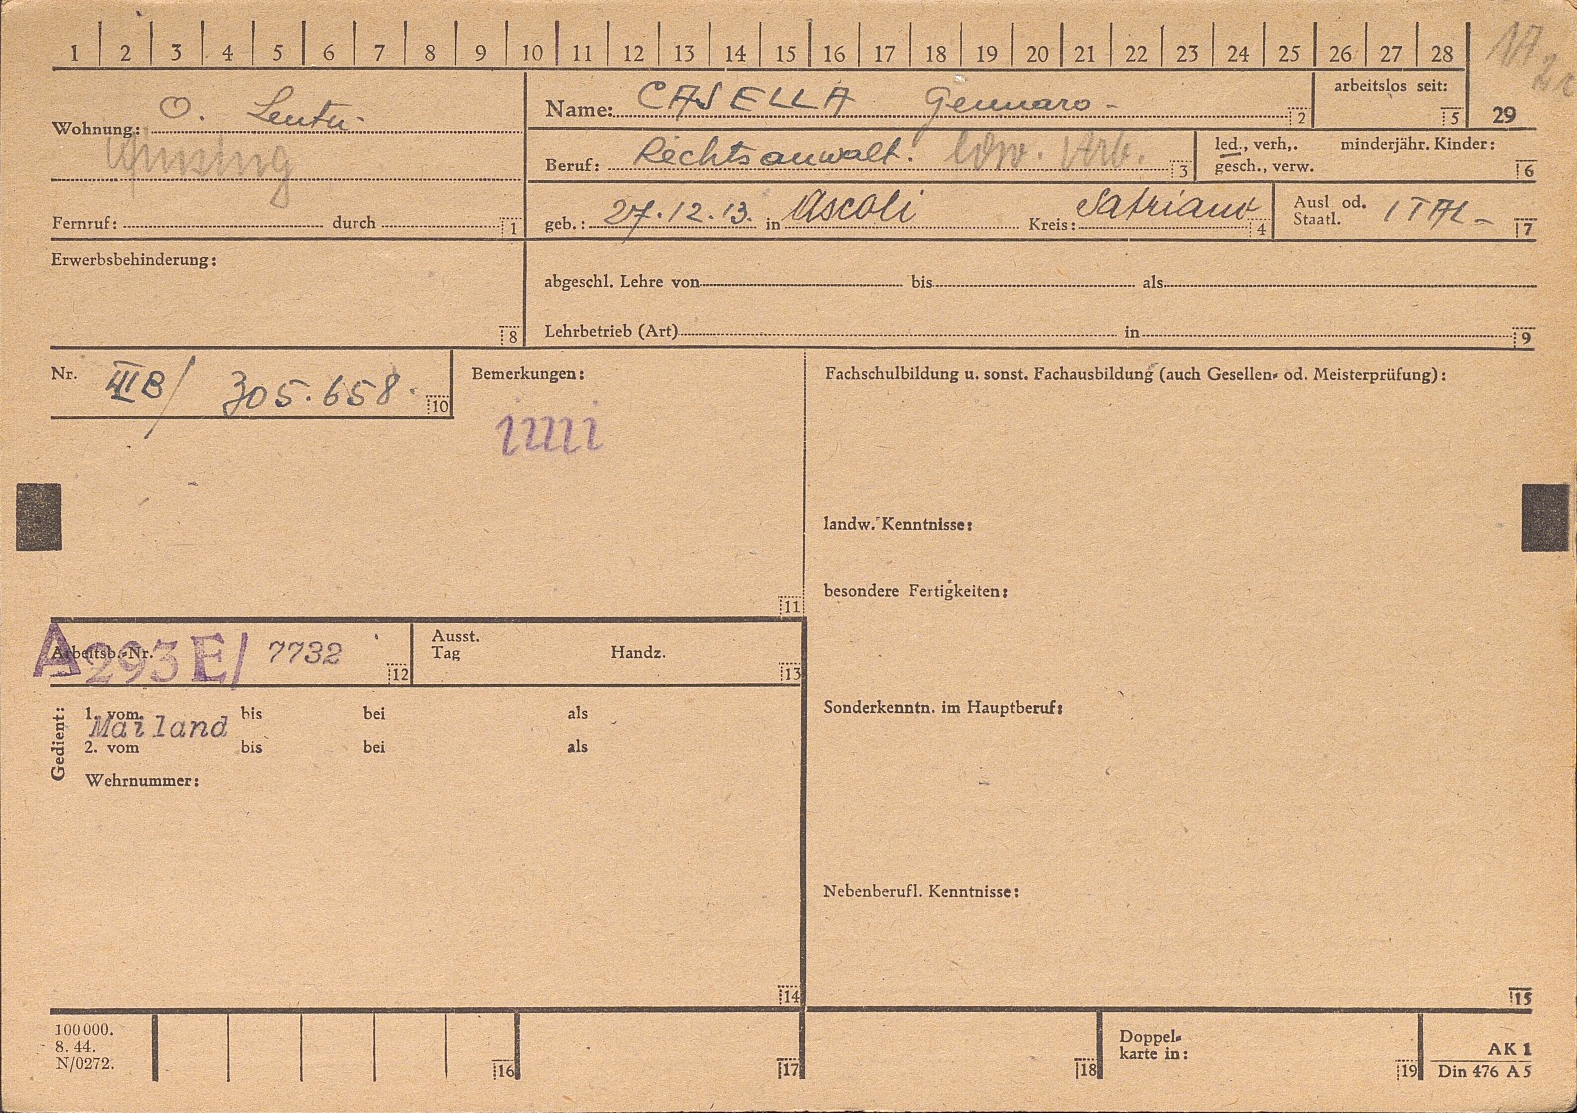 1 2 3 4 5 6 7 8 9 10 11 12 13 14 15 16 17 18 19 20 21 22 23 24 25 26 27 28
29
Wohnung: O.
Fernruf: durch 1
Name: CASELLA Gennaro - 2
arbeitslos seit: 5
Beruf: Rechtsanwalt. ldw. Arb. 3
led., verh,. minderjähr. Kinder:
gesch., verw. 6
geb.: 27.12.13. in Ascoli Kreis: Satriano 4
Ausl od.
Staatl. ITAL- 7
Erwerbsbehinderung:
8
abgeschl. Lehre von bis als
Lehrbetrieb (Art) in 9
Nr. III B/ 305.658. 10
Bemerkungen:
imi
11
Fachschulbildung u. sonst. Fachausbildung (auch Gesellen- od. Meisterprüfung):
landw. Kenntnisse:
besondere Fertigkeiten:
Sonderkenntn. im Hauptberuf:
Nebenberufl. Kenntnisse:
15
Arbeitsb.-Nr. A 293 E/ 7732 12
Ausst.
Tag Handz. 13
Gedient:
1. vom bis bei als
Mailand
2. vom bis bei als
Wehrnummer:
14
100000.
8. 44.
N/0272.
16 17 18
Doppel-
karte in: 19
AK 1
Din 476 A5